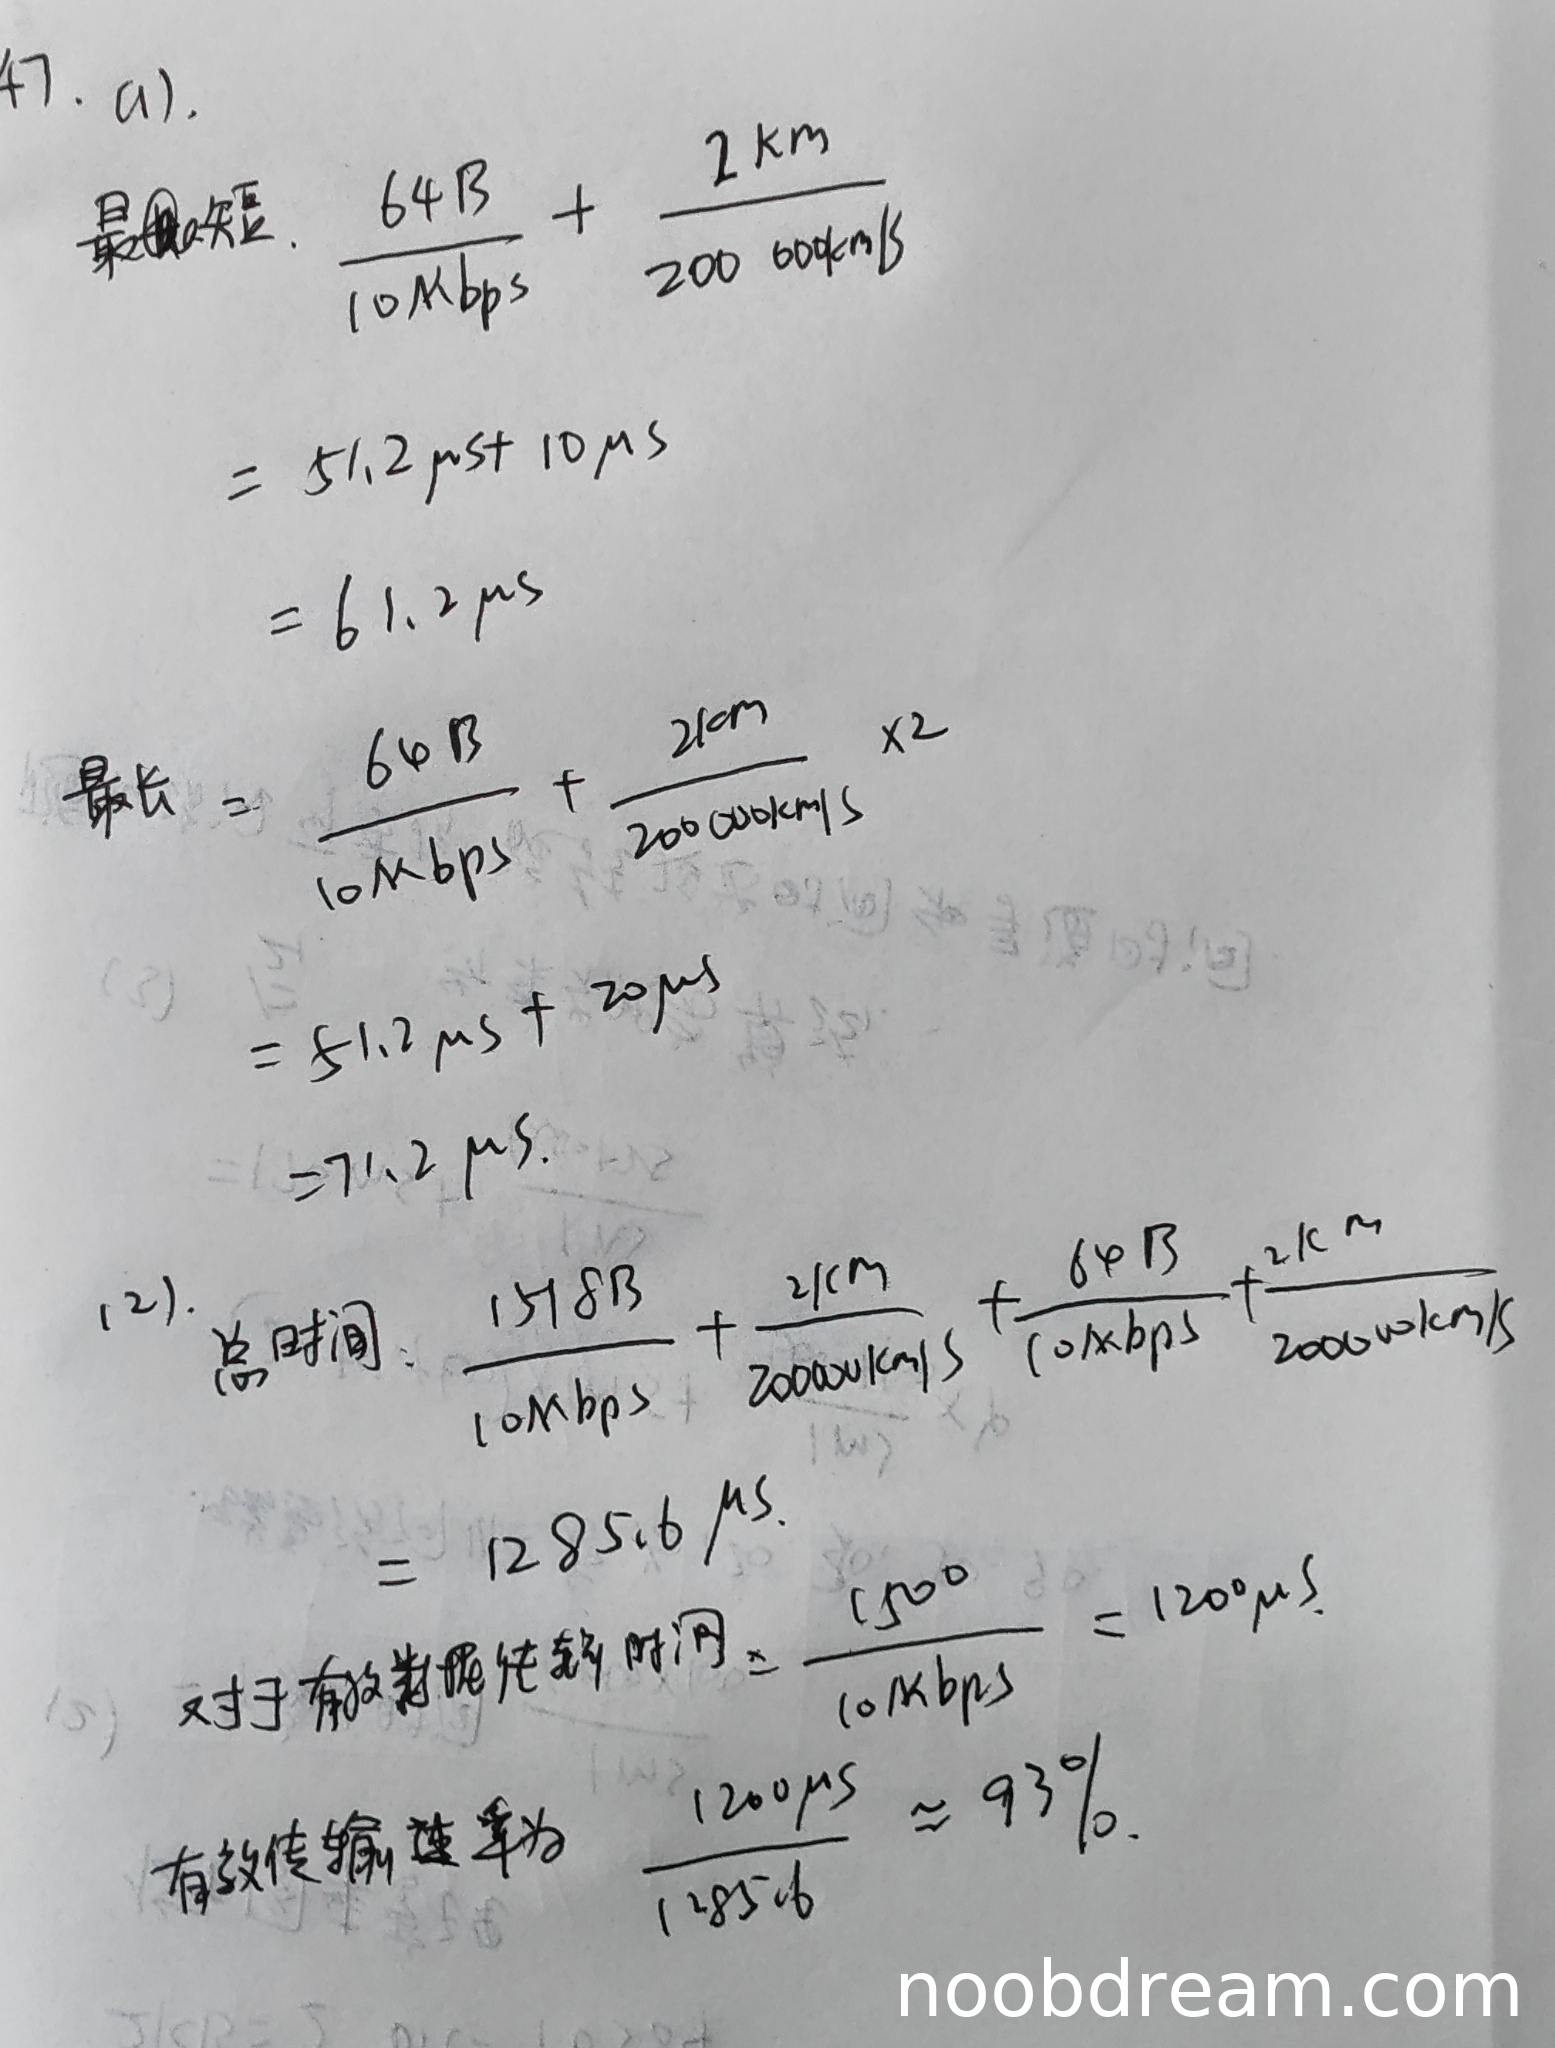 47. (1).
最短. 64B/10Mbps + 2km/200 000km/s
= 51.2μs + 10μs
= 61.2μs
最长 = 64B/10Mbps + 2km/200000km/s ×2
= 51.2μs + 20μs
=71.2μs.
(2). 总时间: 1518B/10Mbps + 2km/200000km/s + 64B/10Mbps + 2km/200000km/s
= 1285.6μs.
对于有效数据传输时间= 1500/10Mbps = 1200μs.
有效传输速率为 1200μs/1285.6 ≈ 93%.
noobdream.com